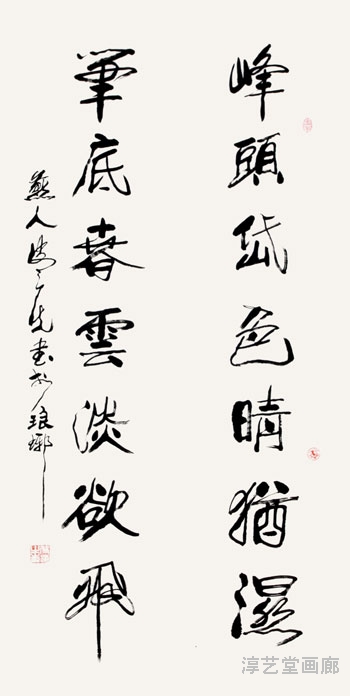 峰頭岱色晴猶濕
筆底春雲淡欲飛
燕人先书於琅琊
淳艺堂画廊